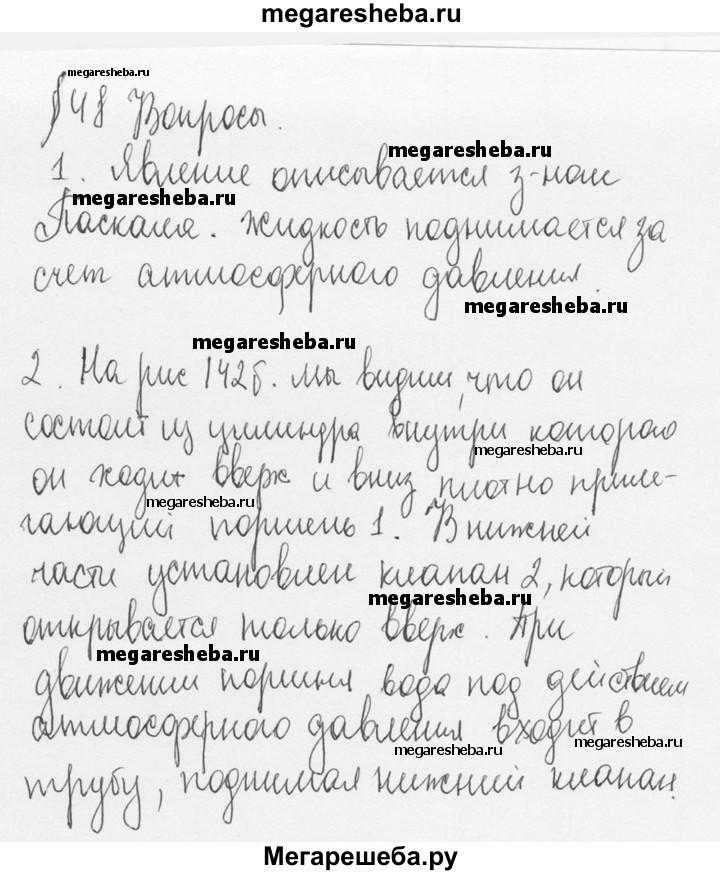 megaresheba.ru
megaresheba.ru
§48 Вопросы.
megaresheba.ru
1. Явление описывается з-ном
megaresheba.ru
Паскаля. Жидкость поднимается за
счет атмосферного давления.
megaresheba.ru
megaresheba.ru
2. На рис 142б. мы видим, что он
состоит из цилиндра внутри которого
megaresheba.ru
он ходит вверх и вниз плотно приле-
megaresheba.ru
гающий поршень 1. В нижней
части установлен клапан 2, который
megaresheba.ru
открывается только вверх. При
megaresheba.ru
движении поршня вода под действием
атмосферного давления входит в
megaresheba.ru
megaresheba.ru
трубу, поднимая нижний клапан.
Мегарешеба.ру